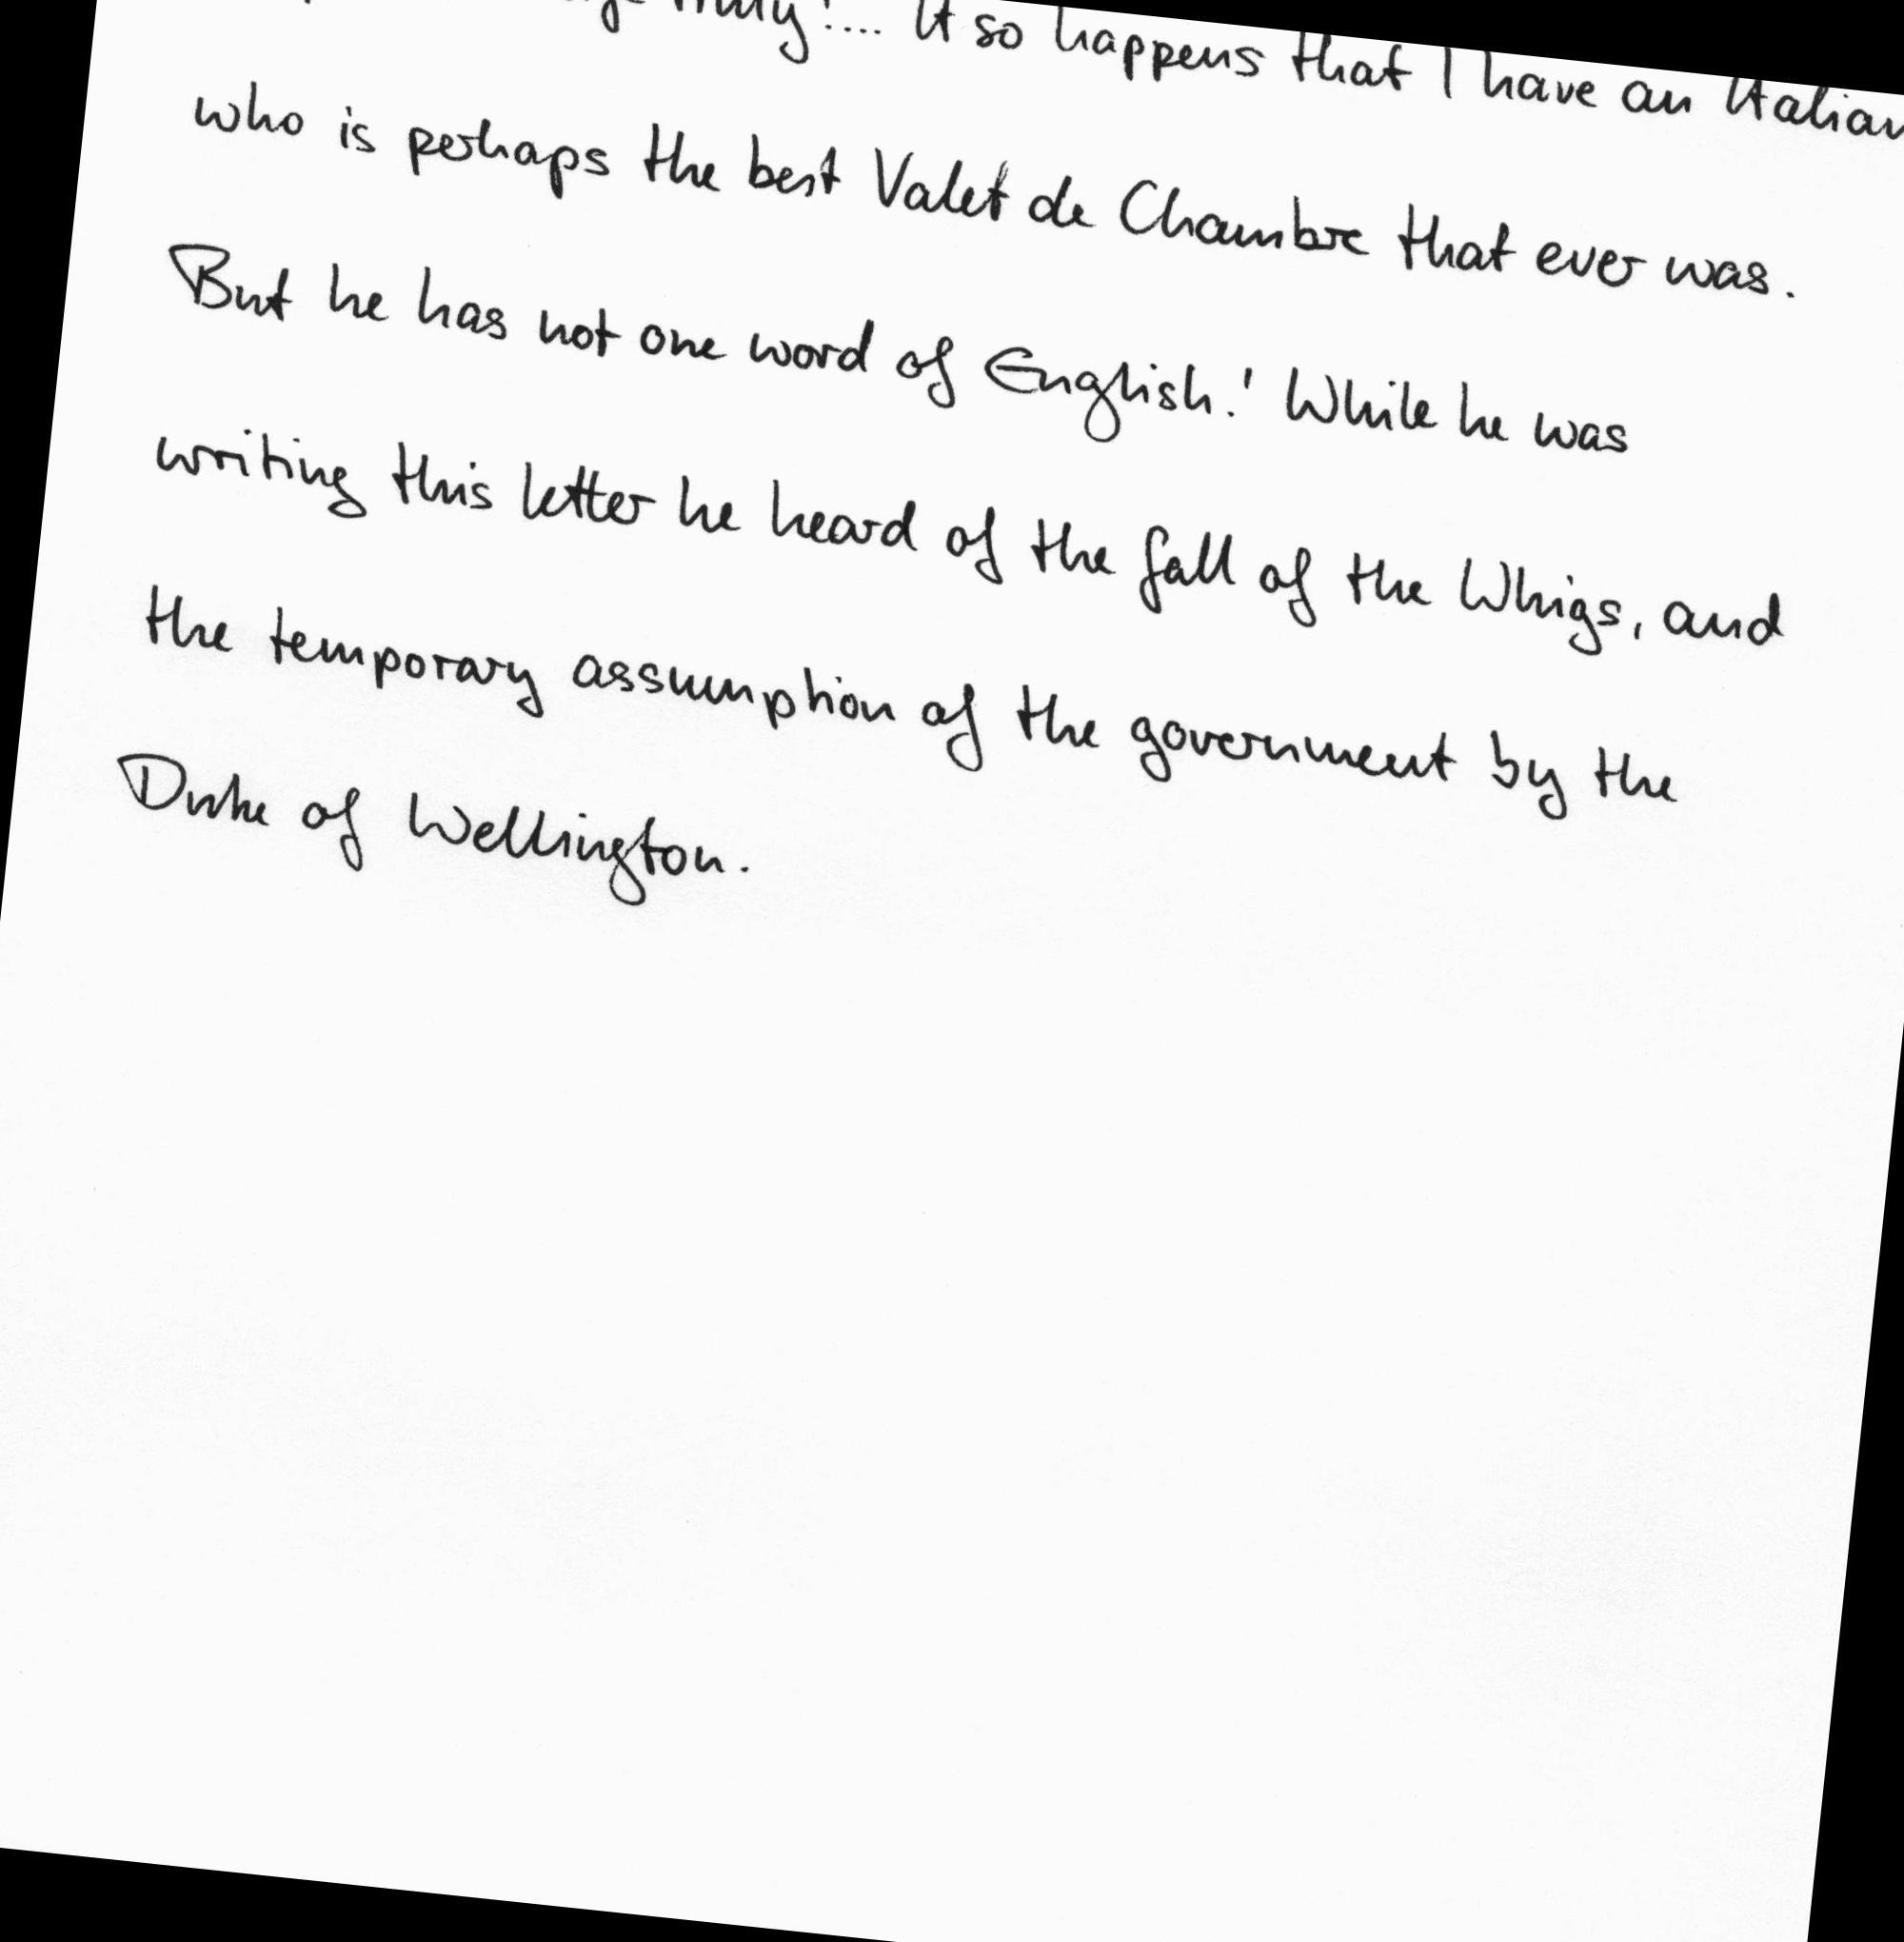 It so happens that I have an Italian
who is perhaps the best Valet de Chambre that ever was.
But he has not one word of English.' While he was
writing this letter he heard of the fall of the Whigs, and
the temporary assumption of the government by the
Duke of Wellington.